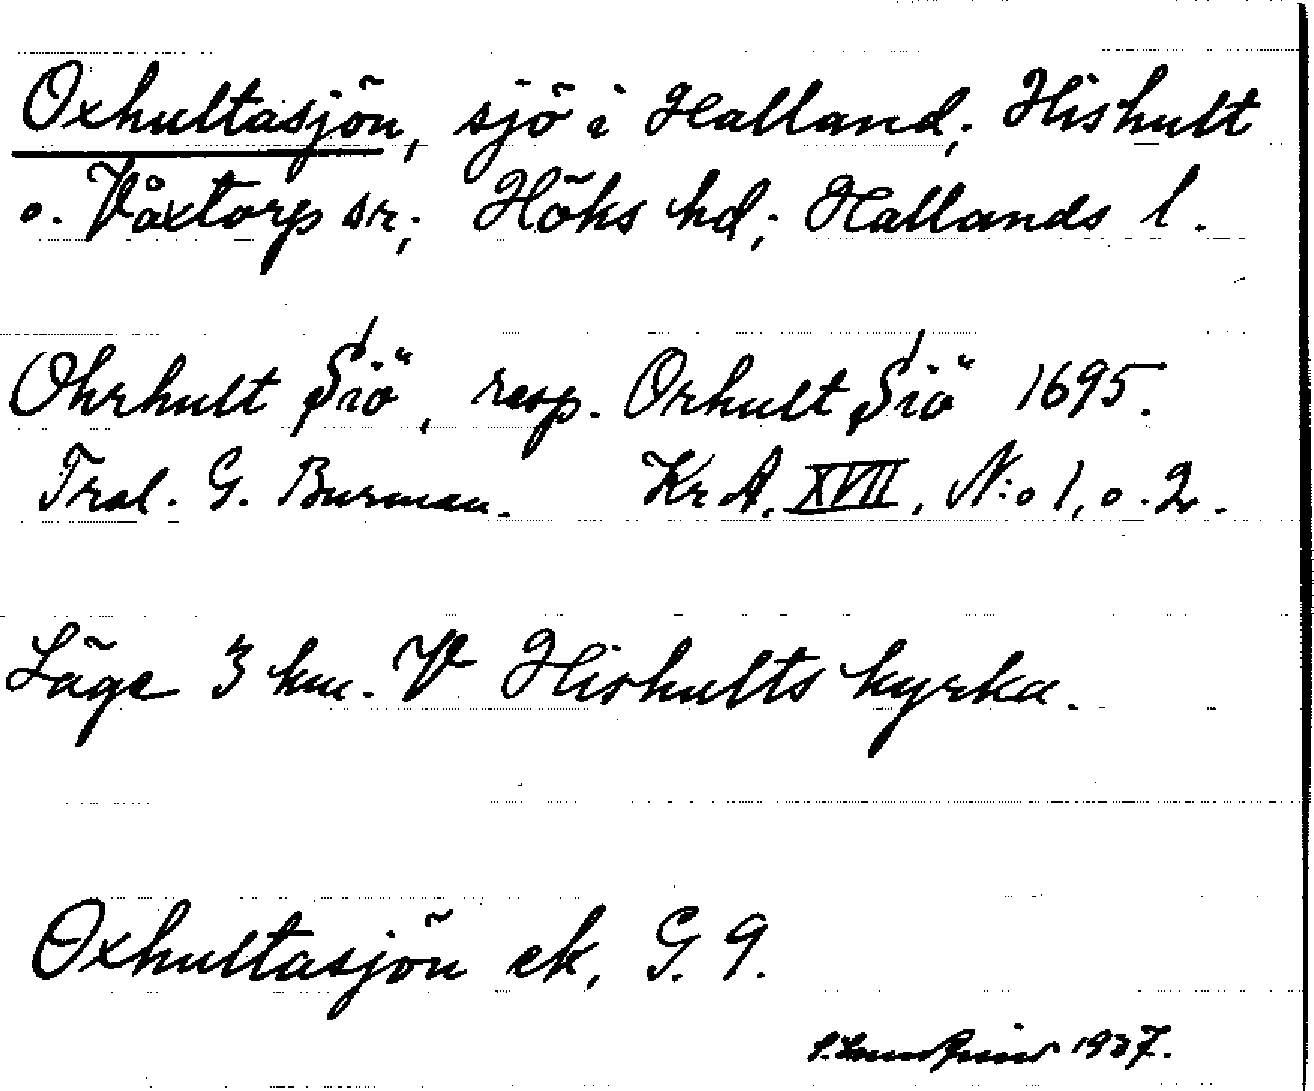 Oxhultasjön, sjö i Halland; Hishult
o. Våxtorp sr; Höks hd; Hallands l.
Ohrhult Siö, resp. Orhult Siö 1695.
Tral. G. Burman. Kr A. XVII, N:o 1, o. 2.
Läge 3 km. V Hishults kyrka.
Oxhultasjön ek, G. 9.
1937.